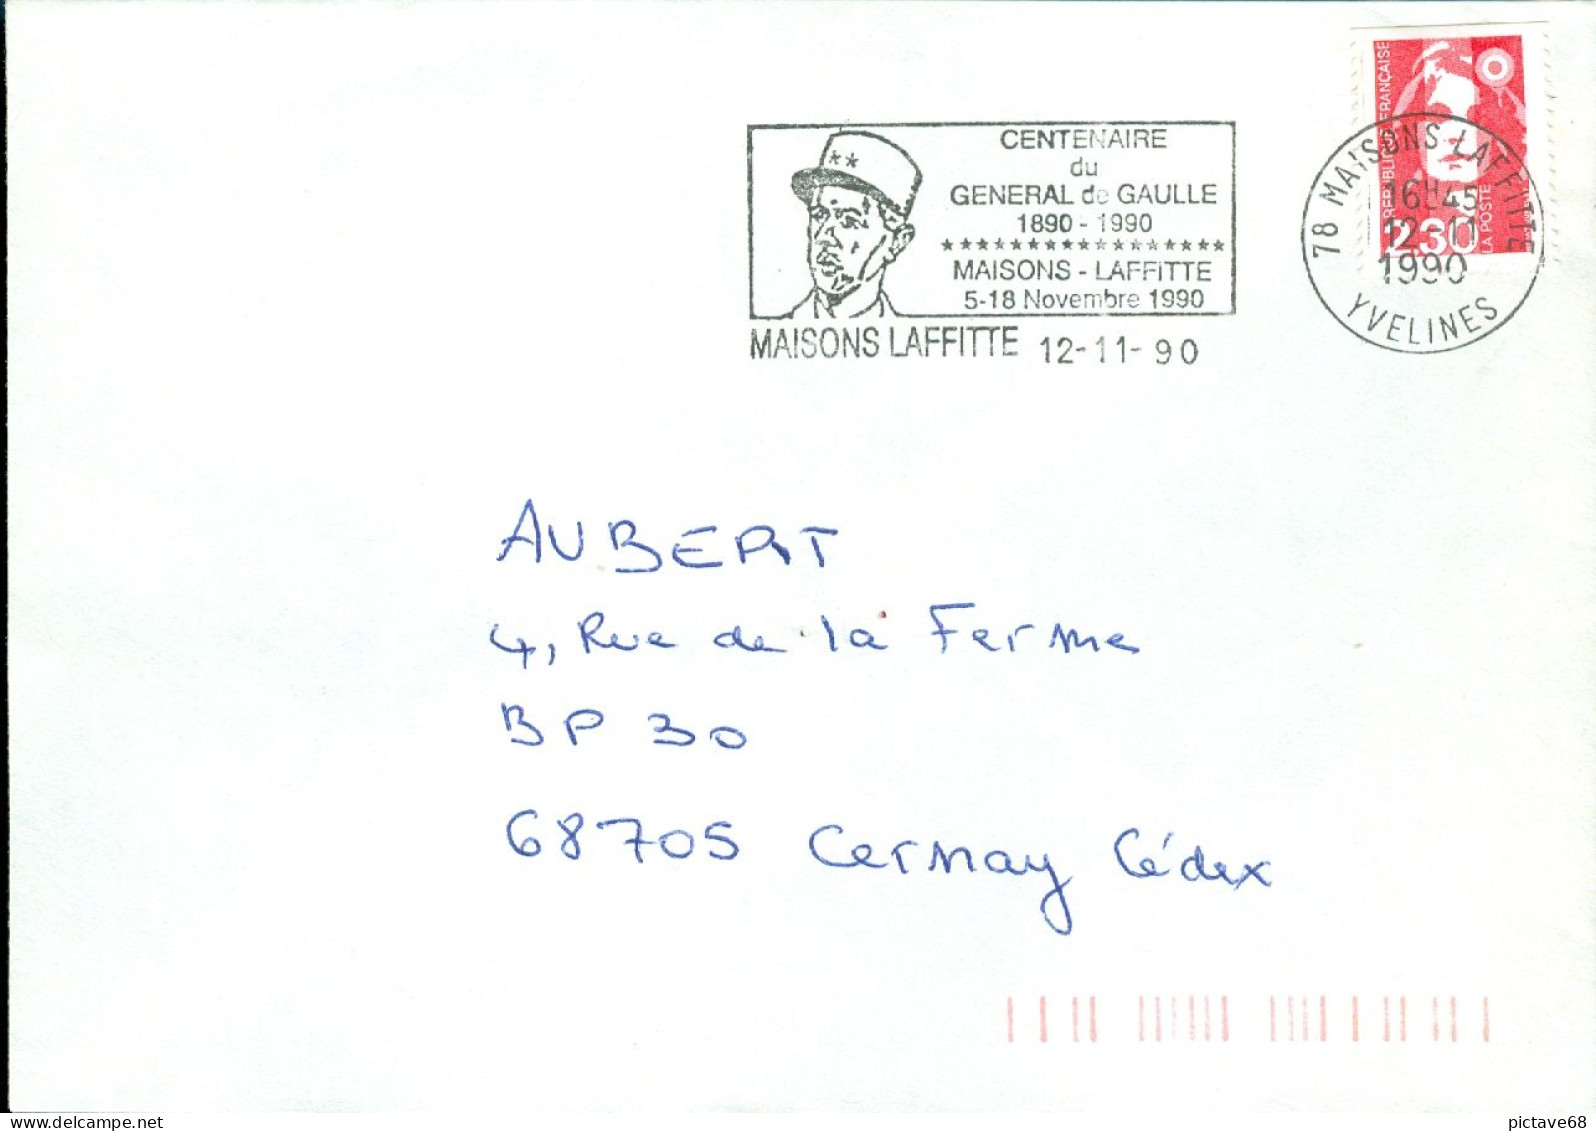 REPUBLIQUE FRANÇAISE
LA POSTE
2.30
CENTENAIRE
du
GENERAL de GAULLE
1890 - 1990
*****************
MAISONS - LAFFITTE
5-18 Novembre 1990
MAISONS LAFFITTE 12-11-90
78 MAISONS LAFFITTE
16H45
12-11
1990
YVELINES
AUBERT
4, Rue de la Ferme
BP 30
68705 Cernay Cédex
pictave68